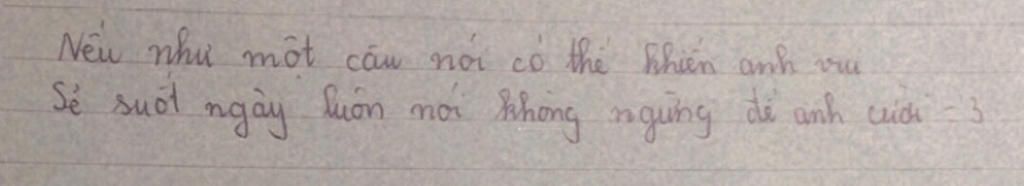 Nếu như một câu nói có thể khiến anh vui
Sẽ suốt ngày luôn nói không ngừng để anh cười =3